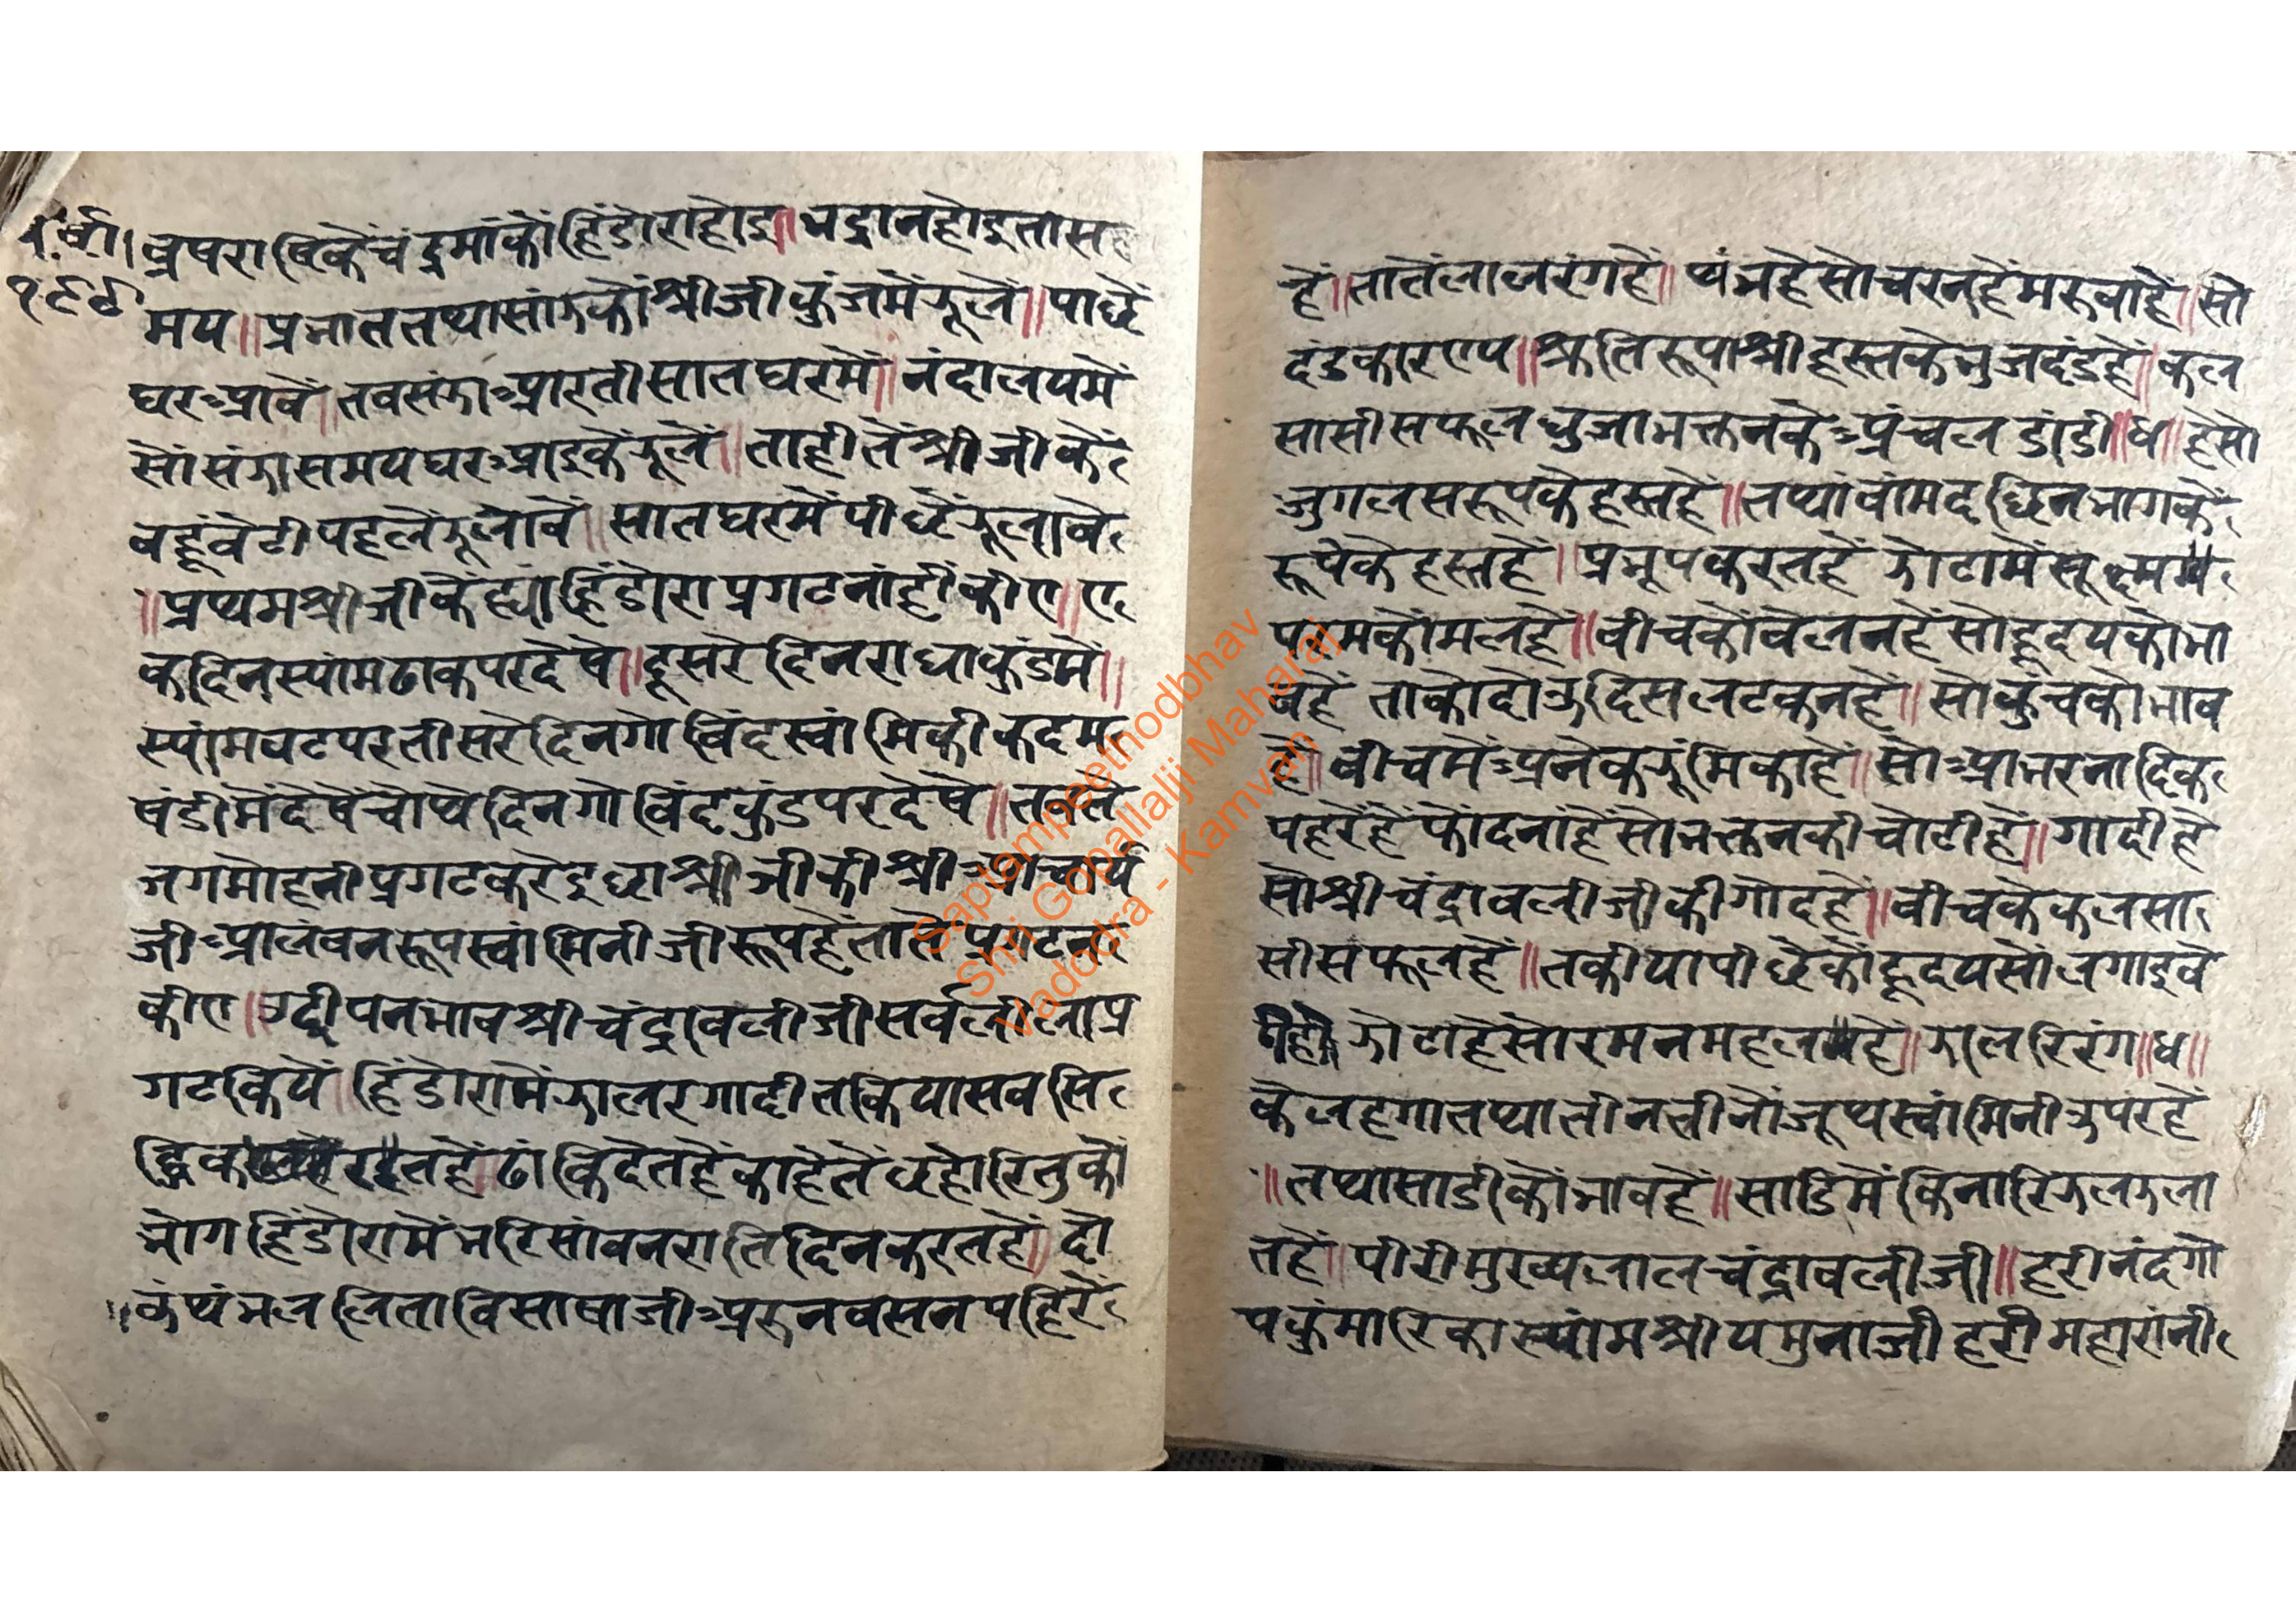 व.र्षा।
१९९
व्रषराषिकें चंद्रमांकों हिंडोरा होइ॥ भद्रा न होइ ता स
मय॥ प्रभात तथा सांझकों श्रीजी कुंजमें झूलें॥ पाछें
घर आवें॥ तब संझा आरती सात घरमें॥ नंदालयमें
सों संझा समय घर आइकें झूलें॥ ताहीतें श्रीजीकें
बहूं बेटी पहलें झूलावें॥ सात घरमें पीछें झूलावें
॥ प्रथम श्रीजीकें ह्यां हिंडोरा प्रगट नांहीं कीए॥ ए
क दिन स्यांम ढाक पर देषे॥ दूसरे दिन राधाकुंडमें॥
स्यांमवट पर तीसरे दिन गोविंदस्वांमिकी कदम
षंडीमें देषें चोथे दिन गोविंदकुंड पर देषे॥ तब तें
जगमोहनी प्रगट करे इछा श्रीजीकी श्री आचार्य
जी आलंबनरूप स्वांमिनीजी रूप हें तातें प्रगट न
कीए॥ उद्दीपन भाव श्रीचंद्रावलीजी सर्व लीला प्र
गट कियें॥ हिंडोरामें झालर गादी तकिया सब सि
रहत हें॥ ढांकि देत हें काहेतें छहो रितुको
भोग हिंडोरामें भरि सांवन राति दिन करत हें॥ दो
॥ कें थंभ ललिता विसाषाजी अरुन वसन पहिरें
हें॥ तातें लाल रंग हें॥ थंभ हे सो चरन हें मरुवा हें॥ सो
दंडकारण्य॥ श्रुतिरूपा श्रीहस्तके भुजदंड हें॥ कल
सा सीसफूल धुजा भक्तनके अंचल डांडी॥ ४॥ हे सो
जुगल सरूपके हस्त हें॥ तथा वांम दछिन भागकें
रूपके हस्त हें॥ प्रभू पकरत हें झोटामें सूक्ष्म
परम कोमल हें॥ बीचको बेलन हें सो हृदयको भा
व हें ताको दोउ दिस लटकन हें॥ सो कुचको भाव
हे॥ बीचमें अनेक झूंमिका हें॥ सो आभरनादिक
पहरें हें फोंदनां हें सो भक्तनकी चोटी हें॥ गादी हे
सो श्रीचंद्रावलीजीकी गोद हे॥ बीचके कलसा
सीसफूल हें॥ तकीया पीछेंकों हृदयसों लगाइवे
झोटा हे सो रमन महल हें॥ झालरि रंग॥ ४॥
के लहगा तथा तीन तीनों जूथ स्वांमिनी उपर हें
॥ तथा साडीको भाव हें॥ साडिमें किनारि झलझला
त हें॥ पीरी मुख्य लाल चंद्रावलीजी॥ हरी नंदगो
पकुंमारिका स्यांम श्रीयमुनाजी हरी महारांनी